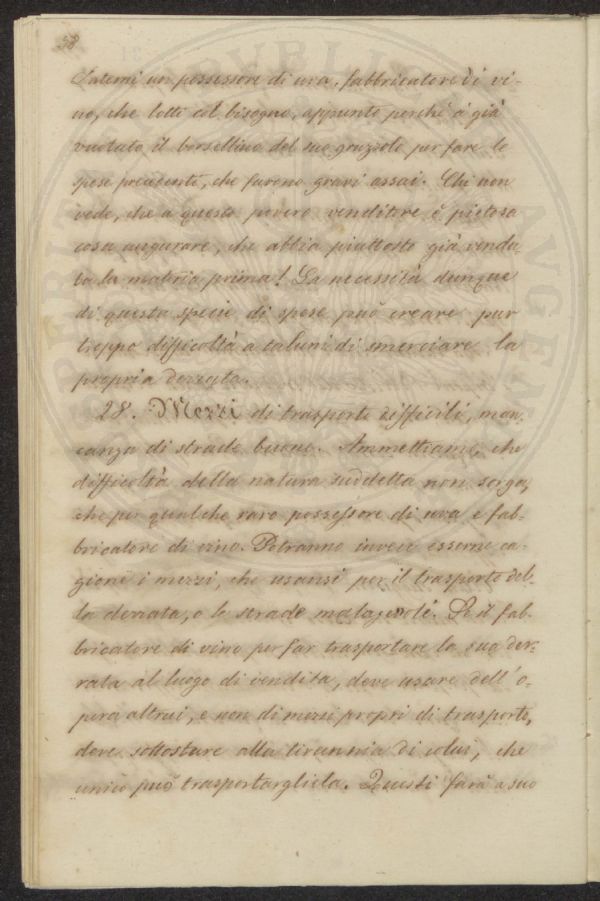 38
Datemi un possessore di uva, fabbricatore di vi-
no, che lotti col bisogno, appunto perchè à già
vuotato il borsellino del suo gruzzolo per fare le
spese precedenti, che furono gravi assai. Chi non
vede, che a questo povero venditore è pietosa
cosa augurare, che abbia piuttosto già vendu-
ta la materia prima! La necessità dunque
di questa specie di spese può creare pur
troppo difficoltà a taluni di smerciare la
propria derrata.
28. Mezzi di trasporto difficili, man-
canza di strade buone. Ammettiamo, che
difficoltà della natura suddetta non sorga,
che per qualche raro possessore di uva e fab-
bricatore di vino. Potranno invece esserne ca-
gione i mezzi, che usansi per il trasporto del-
la derrata, o le strade malagevoli. Se il fab-
bricatore di vino per far trasportare la sua der-
rata al luogo di vendita, deve usare dell'o-
pera altrui, e non di mezzi propri di trasporto,
deve sottostare alla tirannia di colui, che
unico può trasportargliela. Questi farà a suo